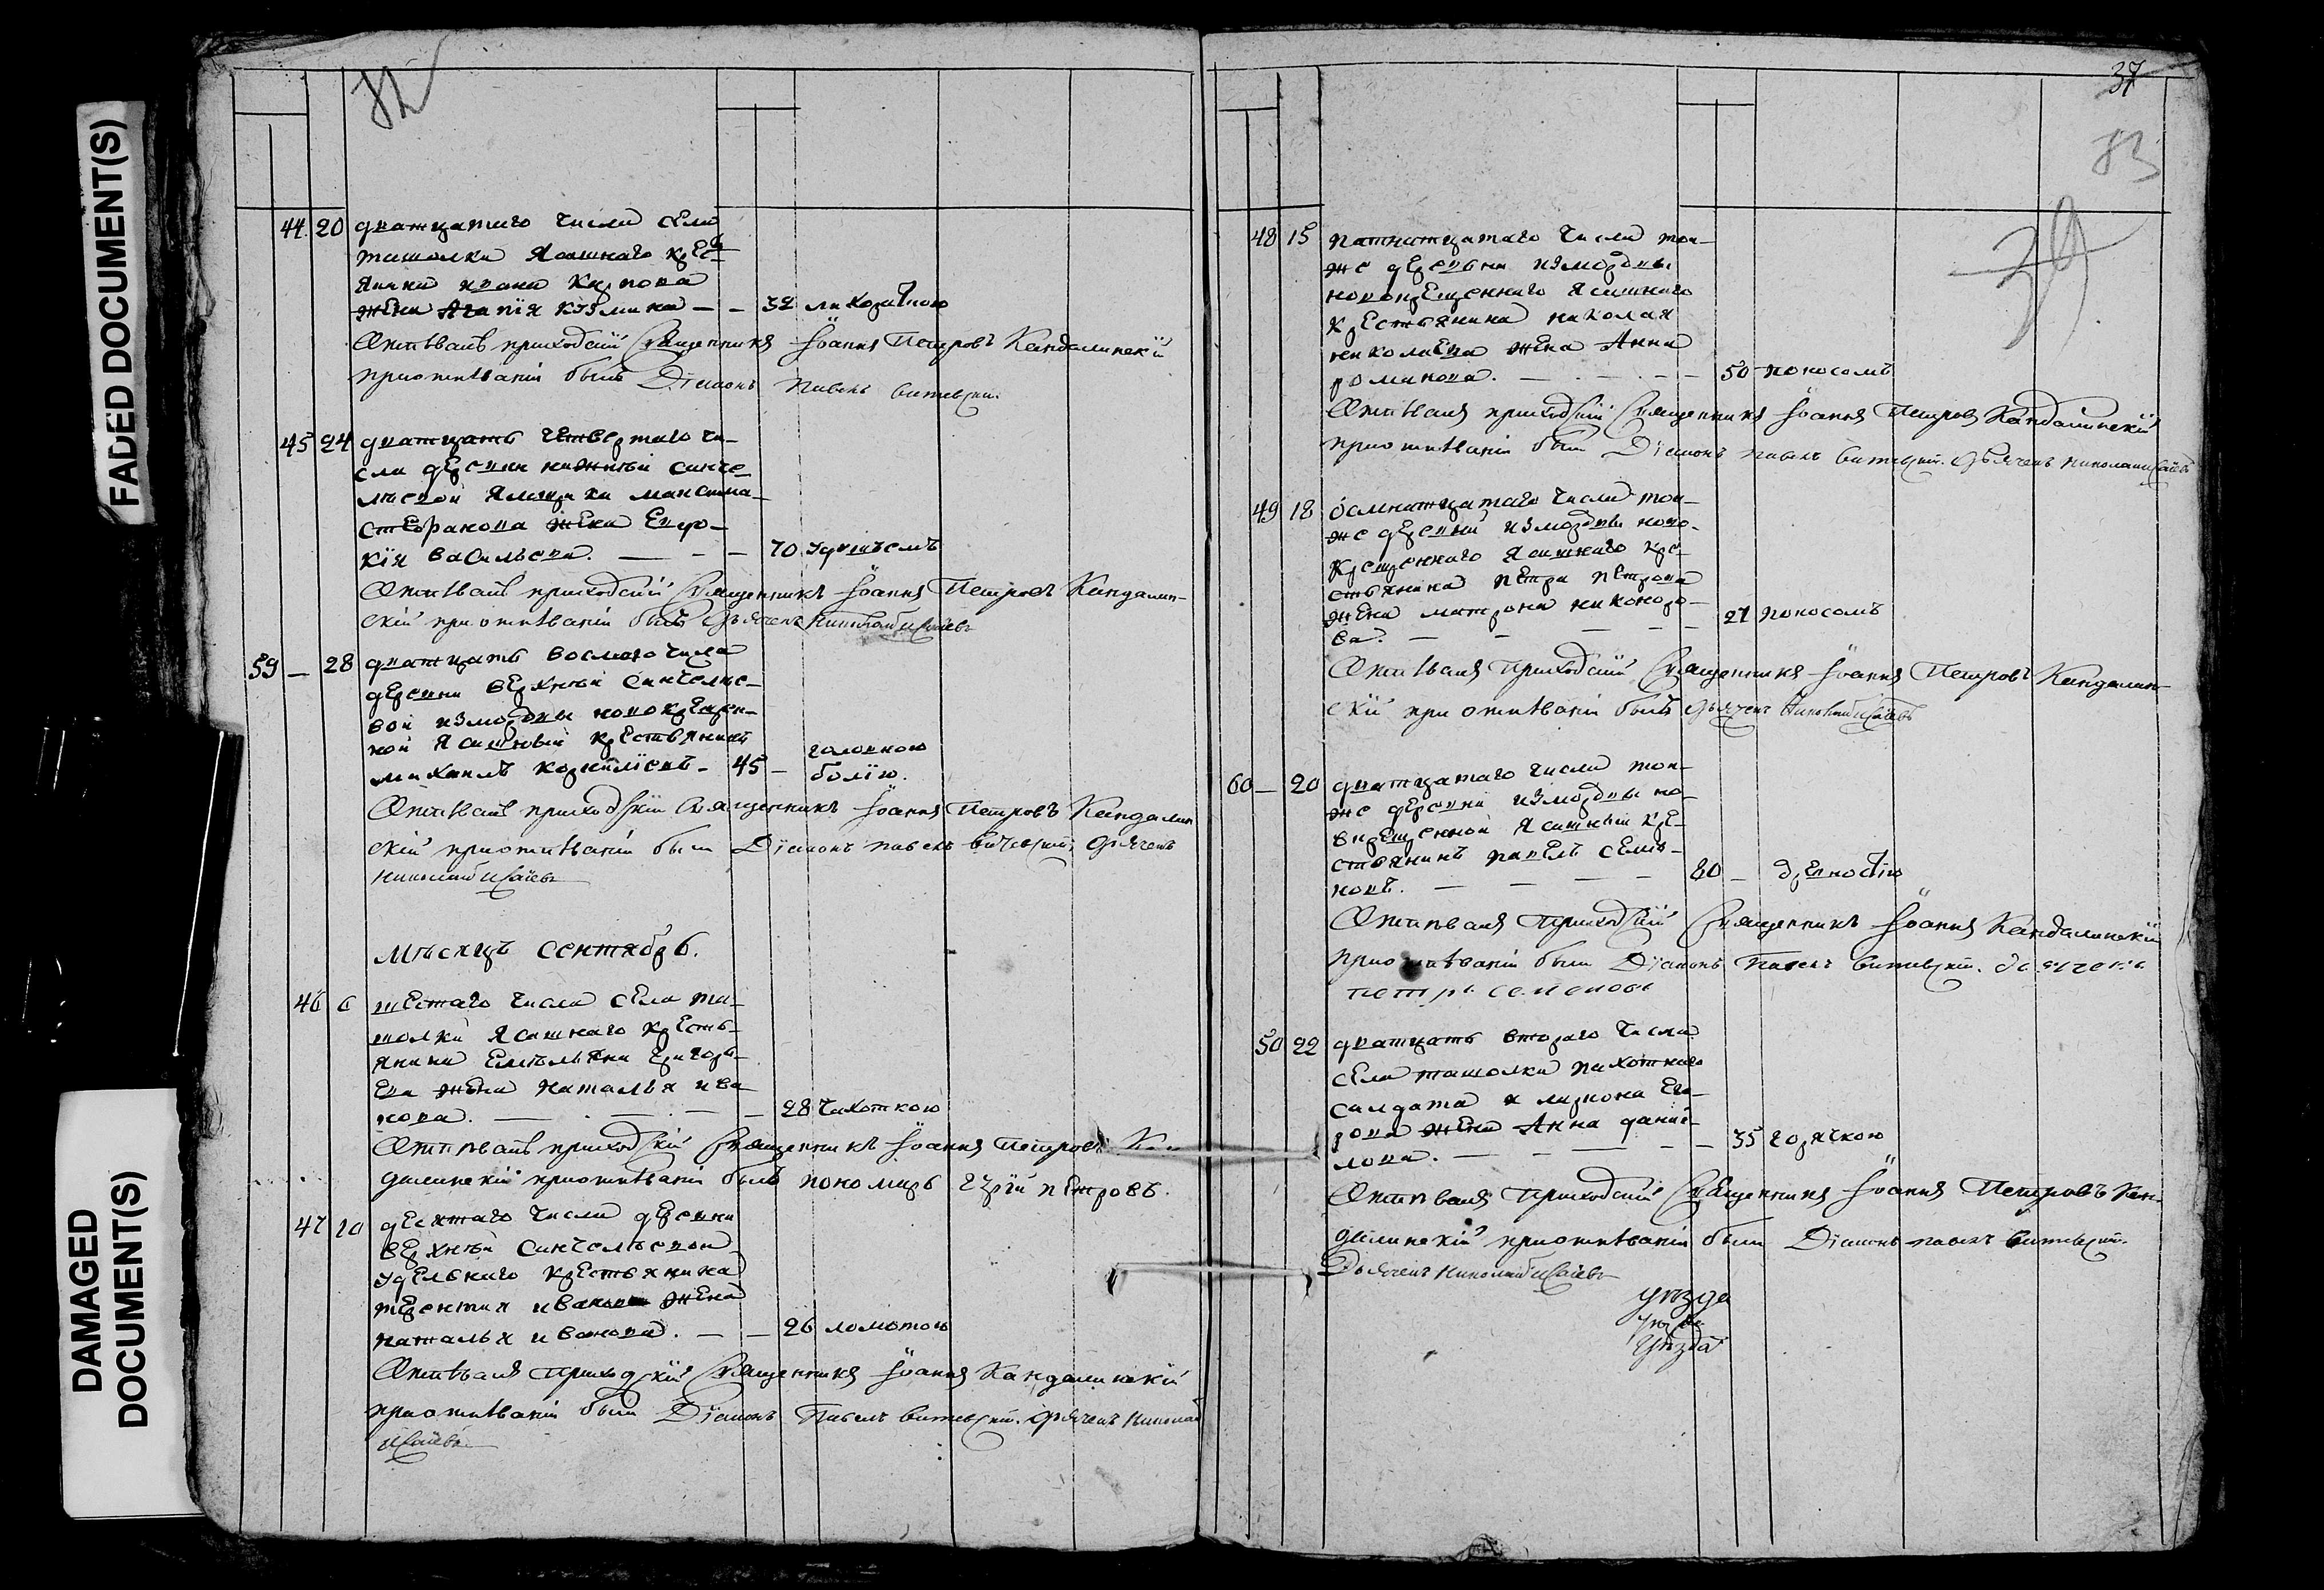 FADED DOCUMENT(S)
DAMAGED
DOCUMENT(S)
82
44 20 дватцатаго числа села
ташолки Ясашнаго крес
янина ивана Карпова
жена Агапія кузмина — — 32 лихораткою
Отпѣвалъ приходскій Священникъ Іоаннъ Петровъ Кандалинскій
приотпѣваніи былъ Діаконъ Павелъ витевскій.
45 24 дватцать четвертаго чи-
сла деревни нижней санче-
леевой Ямщика максима
Стефанова жена Евдо-
кія васильева. — — — 70 удушьемъ
Отпѣвалъ приходскій Священникъ Іоаннъ Петровъ Кандалин-
скій приотпѣваніи былъ дьячекъ Николай исаевъ
59 — 28 дватцать восмаго числа
деревни верхней Санчелее-
вой измордвы новокрещен-
ной Ясашный крестьянинъ
михаилъ корнилісвъ. 45 — головною
болію.
Отпѣвалъ приходскій Священникъ Іоаннъ Петровъ Кандалин
скій приотпѣваніи были Діаконъ павелъ витевскій, дьячекъ
Николай исаевъ
мѣсяцъ сентябрь.
46 6 шестаго числа села та-
шолки Ясашнаго кресть-
янина Емельяна Григорь-
Ева жена Наталья ива-
нова. — — — — 28 чахоткою
Отпѣвалъ приходскій Священникъ Іоаннъ Петровъ Кан
далинскій приотпѣваніи былъ пономарь Егорій петровъ.
47 10 десятаго числа деревни
верхней Санчелеевой
удельнаго крестьянина
терентия иванова жена
наталья иванова. — — 26 ломотою
Отпѣвалъ приходскій Священникъ Іоаннъ Кандалинскій
приотпѣваніи были Діаконъ Павелъ витевскій. дьячекъ Николай
исаевъ
37
83
39
48 15 пятнатцатаго числа тои-
же деревни измордвы
новокрещеннаго Ясашнаго
крестьянина николая
николаева жена Анна
романова. — — — 50 поносомъ
Отпѣвалъ приходскій Священникъ Іоаннъ Петровъ Кандалинскій
приотпѣваніи были Діаконъ павелъ витевскій. дьячекъ николай исаевъ
49 18 осмнатцатаго числа тои-
же деревни измордвы ново-
крещеннаго Ясашнаго кре-
стьянина петра петрова
жена матрона никоноро-
ва. — — — — 27 поносомъ
Отпѣвалъ Приходскій Священникъ Іоаннъ Петровъ Кандалин-
скій при отпѣваніи былъ дьячекъ Николай исаевъ
60 — 20 дватцатаго числа тои-
же деревни измордвы но-
вкрещенной Ясашный кре-
стьянинъ павелъ семіо-
новъ. — — — — 80 — древностію
Отпѣвалъ Приходскій Священникъ Іоаннъ Кандалинскій
приотпѣваніи были Діаконъ Павелъ витевскій. дьячекъ
петръ семеновъ
50 22 дватцать втораго числа
села ташолки пахотнаго
салдата илариона Его-
рова жена Анна данні-
лова. — — — — 35 горячкою
Отпѣвалъ Приходскій Священникъ Іоаннъ Петровъ Кан-
далинскій приотпѣваніи были Діаконъ павелъ витевскій.
Дьячекъ Николай исаевъ
уѣзда
уѣзда
Уѣзда